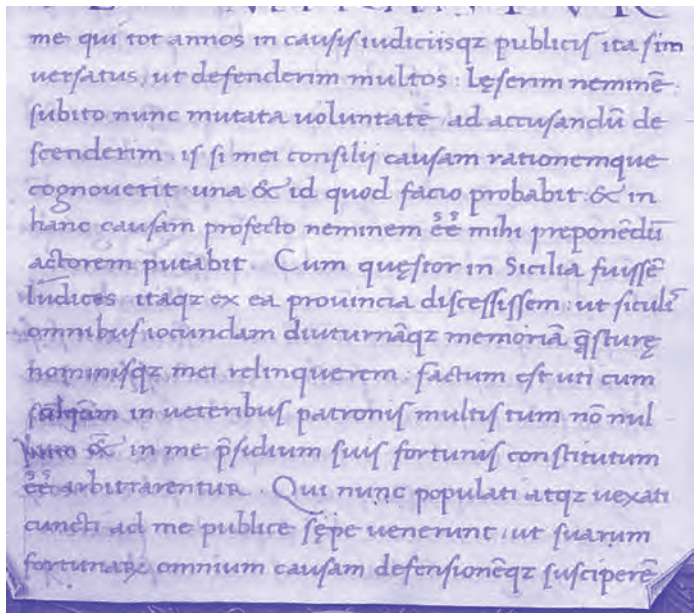 me qui tot annos in causiſ iudiciisqꝫ publiciſ ita ſim
uerſatus, ut defenderim multos : Lęſerim neminē :
ſubito nunc mutata uoluntate ad accuſandū de
ſcenderim . iſ ſi mei conſilij cauſam rationemque
cognouerit una & id quod facio probabit : & in
hanc cauſam profecto neminem ēē mihi preponēdū
actorem putabit . Cum queſtor in Sicilia fuiſſē
Iudices itaqꝫ ex ea prouincia diſceſſiſſem : ut ſiculiſ
omnibuſ iocundam diuturnāqꝫ memoriā q̄ſturę
nominiſqꝫ mei relinquerem : factum eſt uti cum
in ueteribuſ patroniſ multiſ tum nō nul
& in me p̄ſidium ſuiſ fortuniſ conſtitutum
ēē arbitrarentur . Qui nunc populati atqꝫ uexati
cuncti ad me publice ſępe uenerunt , ut ſuarum
fortunarꝫ omnium cauſam defenſionēqꝫ ſuſciperē